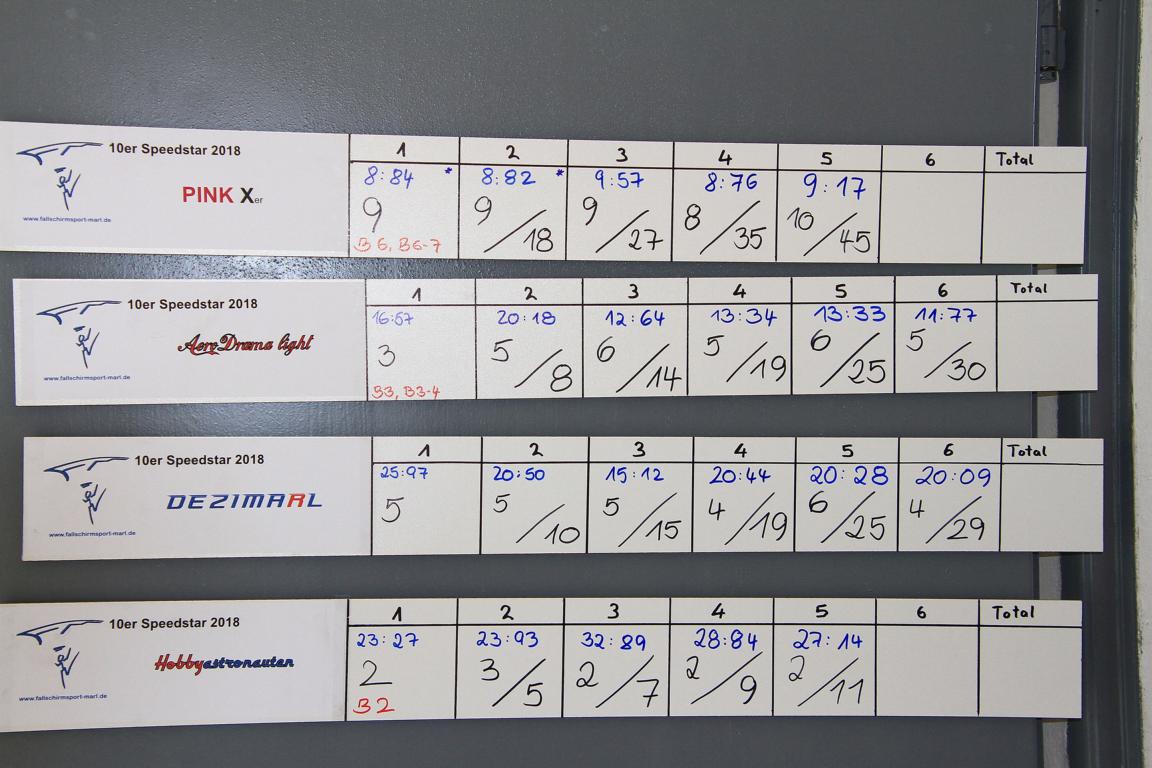 10er Speedstar 2018 1 2 3 4 5 6 Total
8:84 * 8:82 * 9:57 8:76 9:17
PINK Xer 9 9/18 9/27 8/35 10/45
www.fallschirmsport-marl.de B6, B6-7
10er Speedstar 2018 1 2 3 4 5 6 Total
16:57 20:18 12:64 13:34 13:33 11:77
AeroDrama light 3 5/8 6/14 5/19 6/25 5/30
www.fallschirmsport-marl.de B3, B3-4
10er Speedstar 2018 1 2 3 4 5 6 Total
25:97 20:50 15:12 20:44 20:28 20:09
DEZIMARL 5 5/10 5/15 4/19 6/25 4/29
www.fallschirmsport-marl.de
10er Speedstar 2018 1 2 3 4 5 6 Total
23:27 23:93 32:89 28:84 27:14
Hobbyastronauten 2 3/5 2/7 2/9 2/11
www.fallschirmsport-marl.de B2